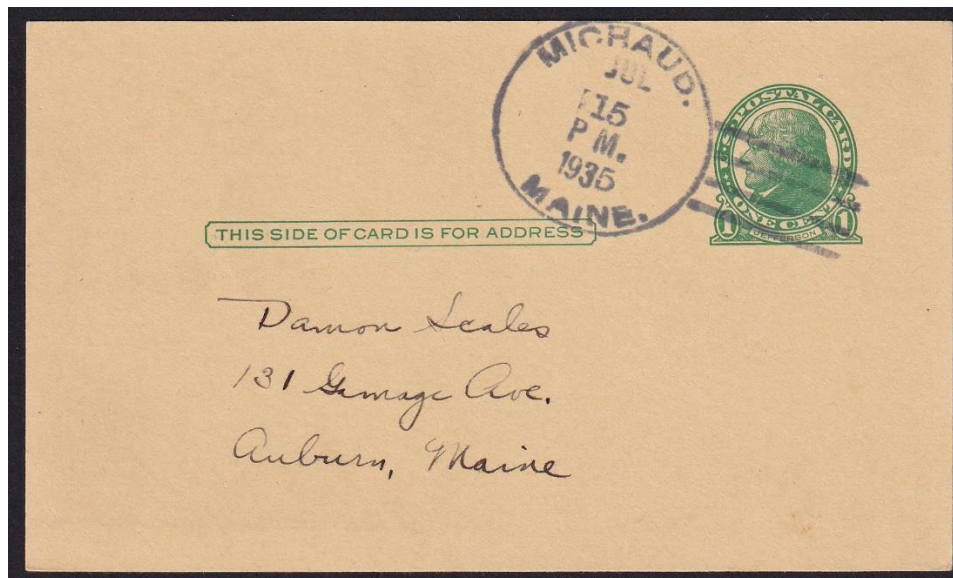 MICHAUD.
JUL
15
P M.
1935
MAINE.
U·S·POSTAL CARD
1 ONE CENT 1
JEFFERSON
THIS SIDE OF CARD IS FOR ADDRESS
Damon Scales
131 Gamage Ave.
Auburn, Maine